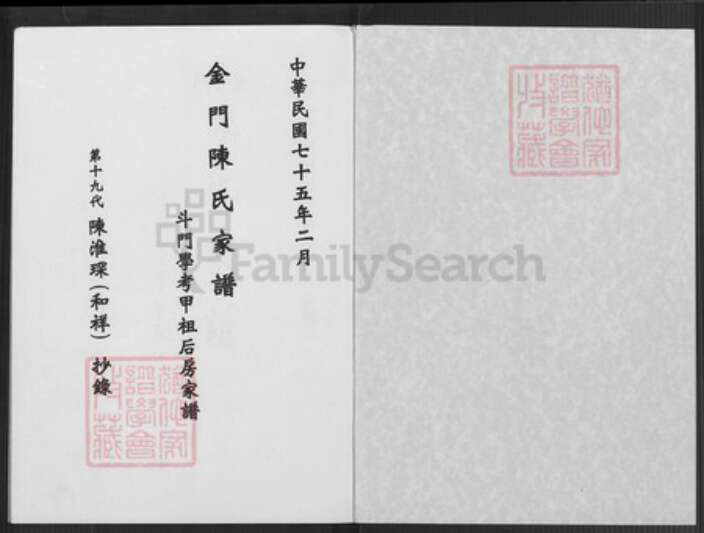 中華民國七十五年二月
金門陳氏家譜
斗門學考甲祖后房家譜
第十九代 陳淮琛(和祥)抄錄
FamilySearch